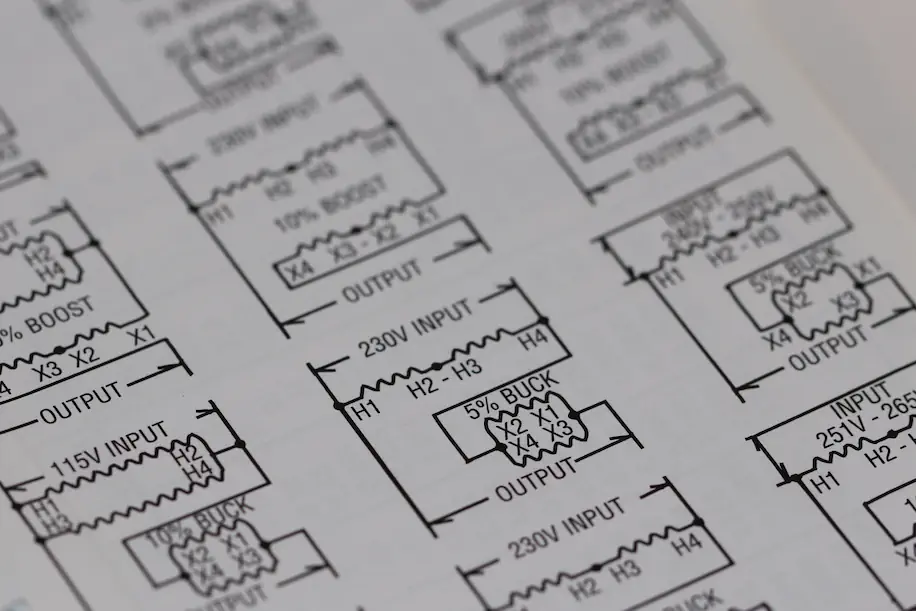 OUTPUT
10% BOOST
OUTPUT
230V INPUT
H1 H2 H3 H4
10% BOOST
X4 X3 - X2 X1
OUTPUT
INPUT
240V - 250V
H1 H2 - H3 H4
5% BUCK
X2 X3 X1
X4
OUTPUT
H2
H4
% BOOST
X3 X2 X1
OUTPUT
230V INPUT
H1 H2 - H3 H4
5% BUCK
X2 X1
X4 X3
OUTPUT
INPUT
251V - 265
H1 H2 -
115V INPUT
H1 H2
H3 H4
10% BUCK
X2 X1
X4 X3
OUTPUT
230V INPUT
H2 H3 H4
BUCK